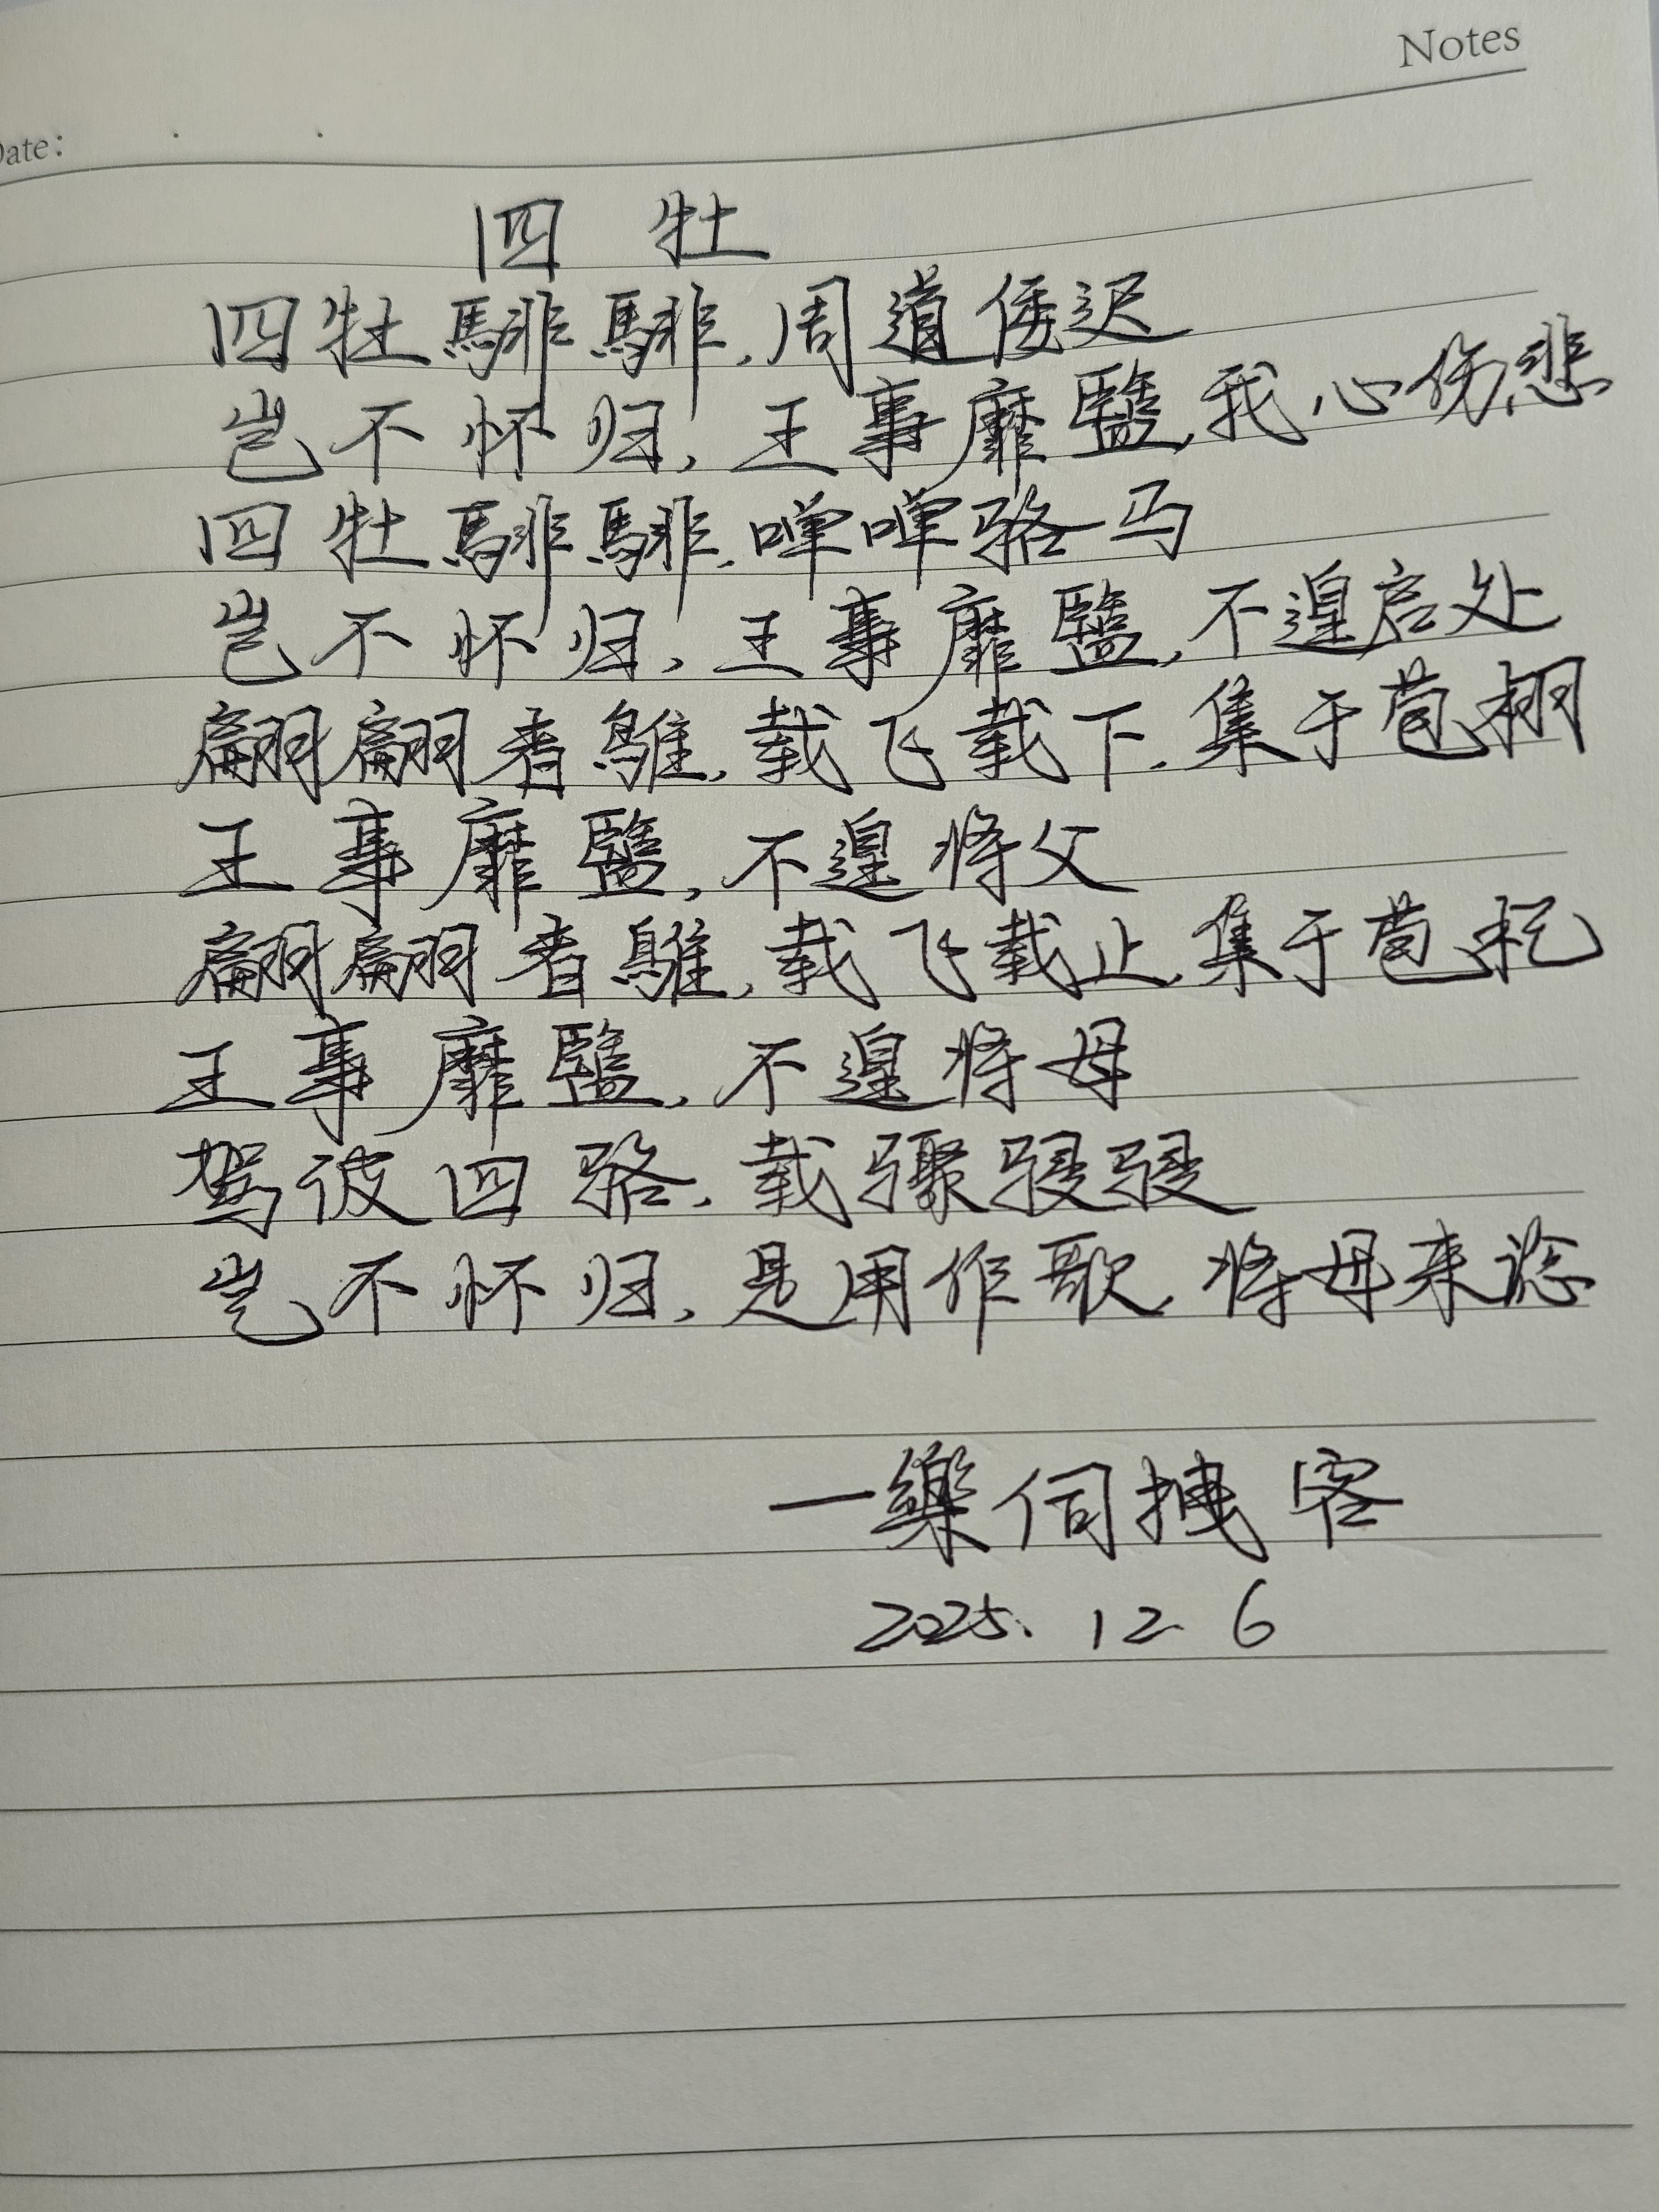 Notes
Date:
四牡
四牡騑騑,周道倭迟
岂不怀归,王事靡盬,我心伤悲
四牡騑騑,啴啴骆马
岂不怀归,王事靡盬,不遑启处
翩翩者鵻,载飞载下,集于苞栩
王事靡盬,不遑将父
翩翩者鵻,载飞载止,集于苞杞
王事靡盬,不遑将母
驾彼四骆,载骤骎骎
岂不怀归,是用作歌,将母来谂
一樂伺拽客
2025.12.6